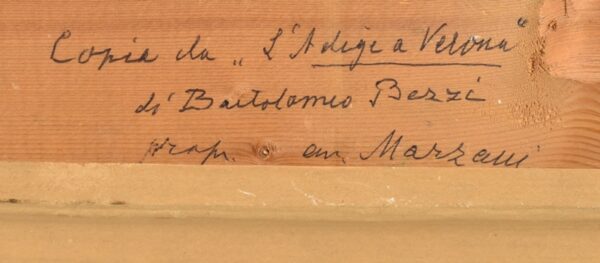 Copia da „L'Adige a Verona"
di Bartolomeo Bezzi
propr. Marzani